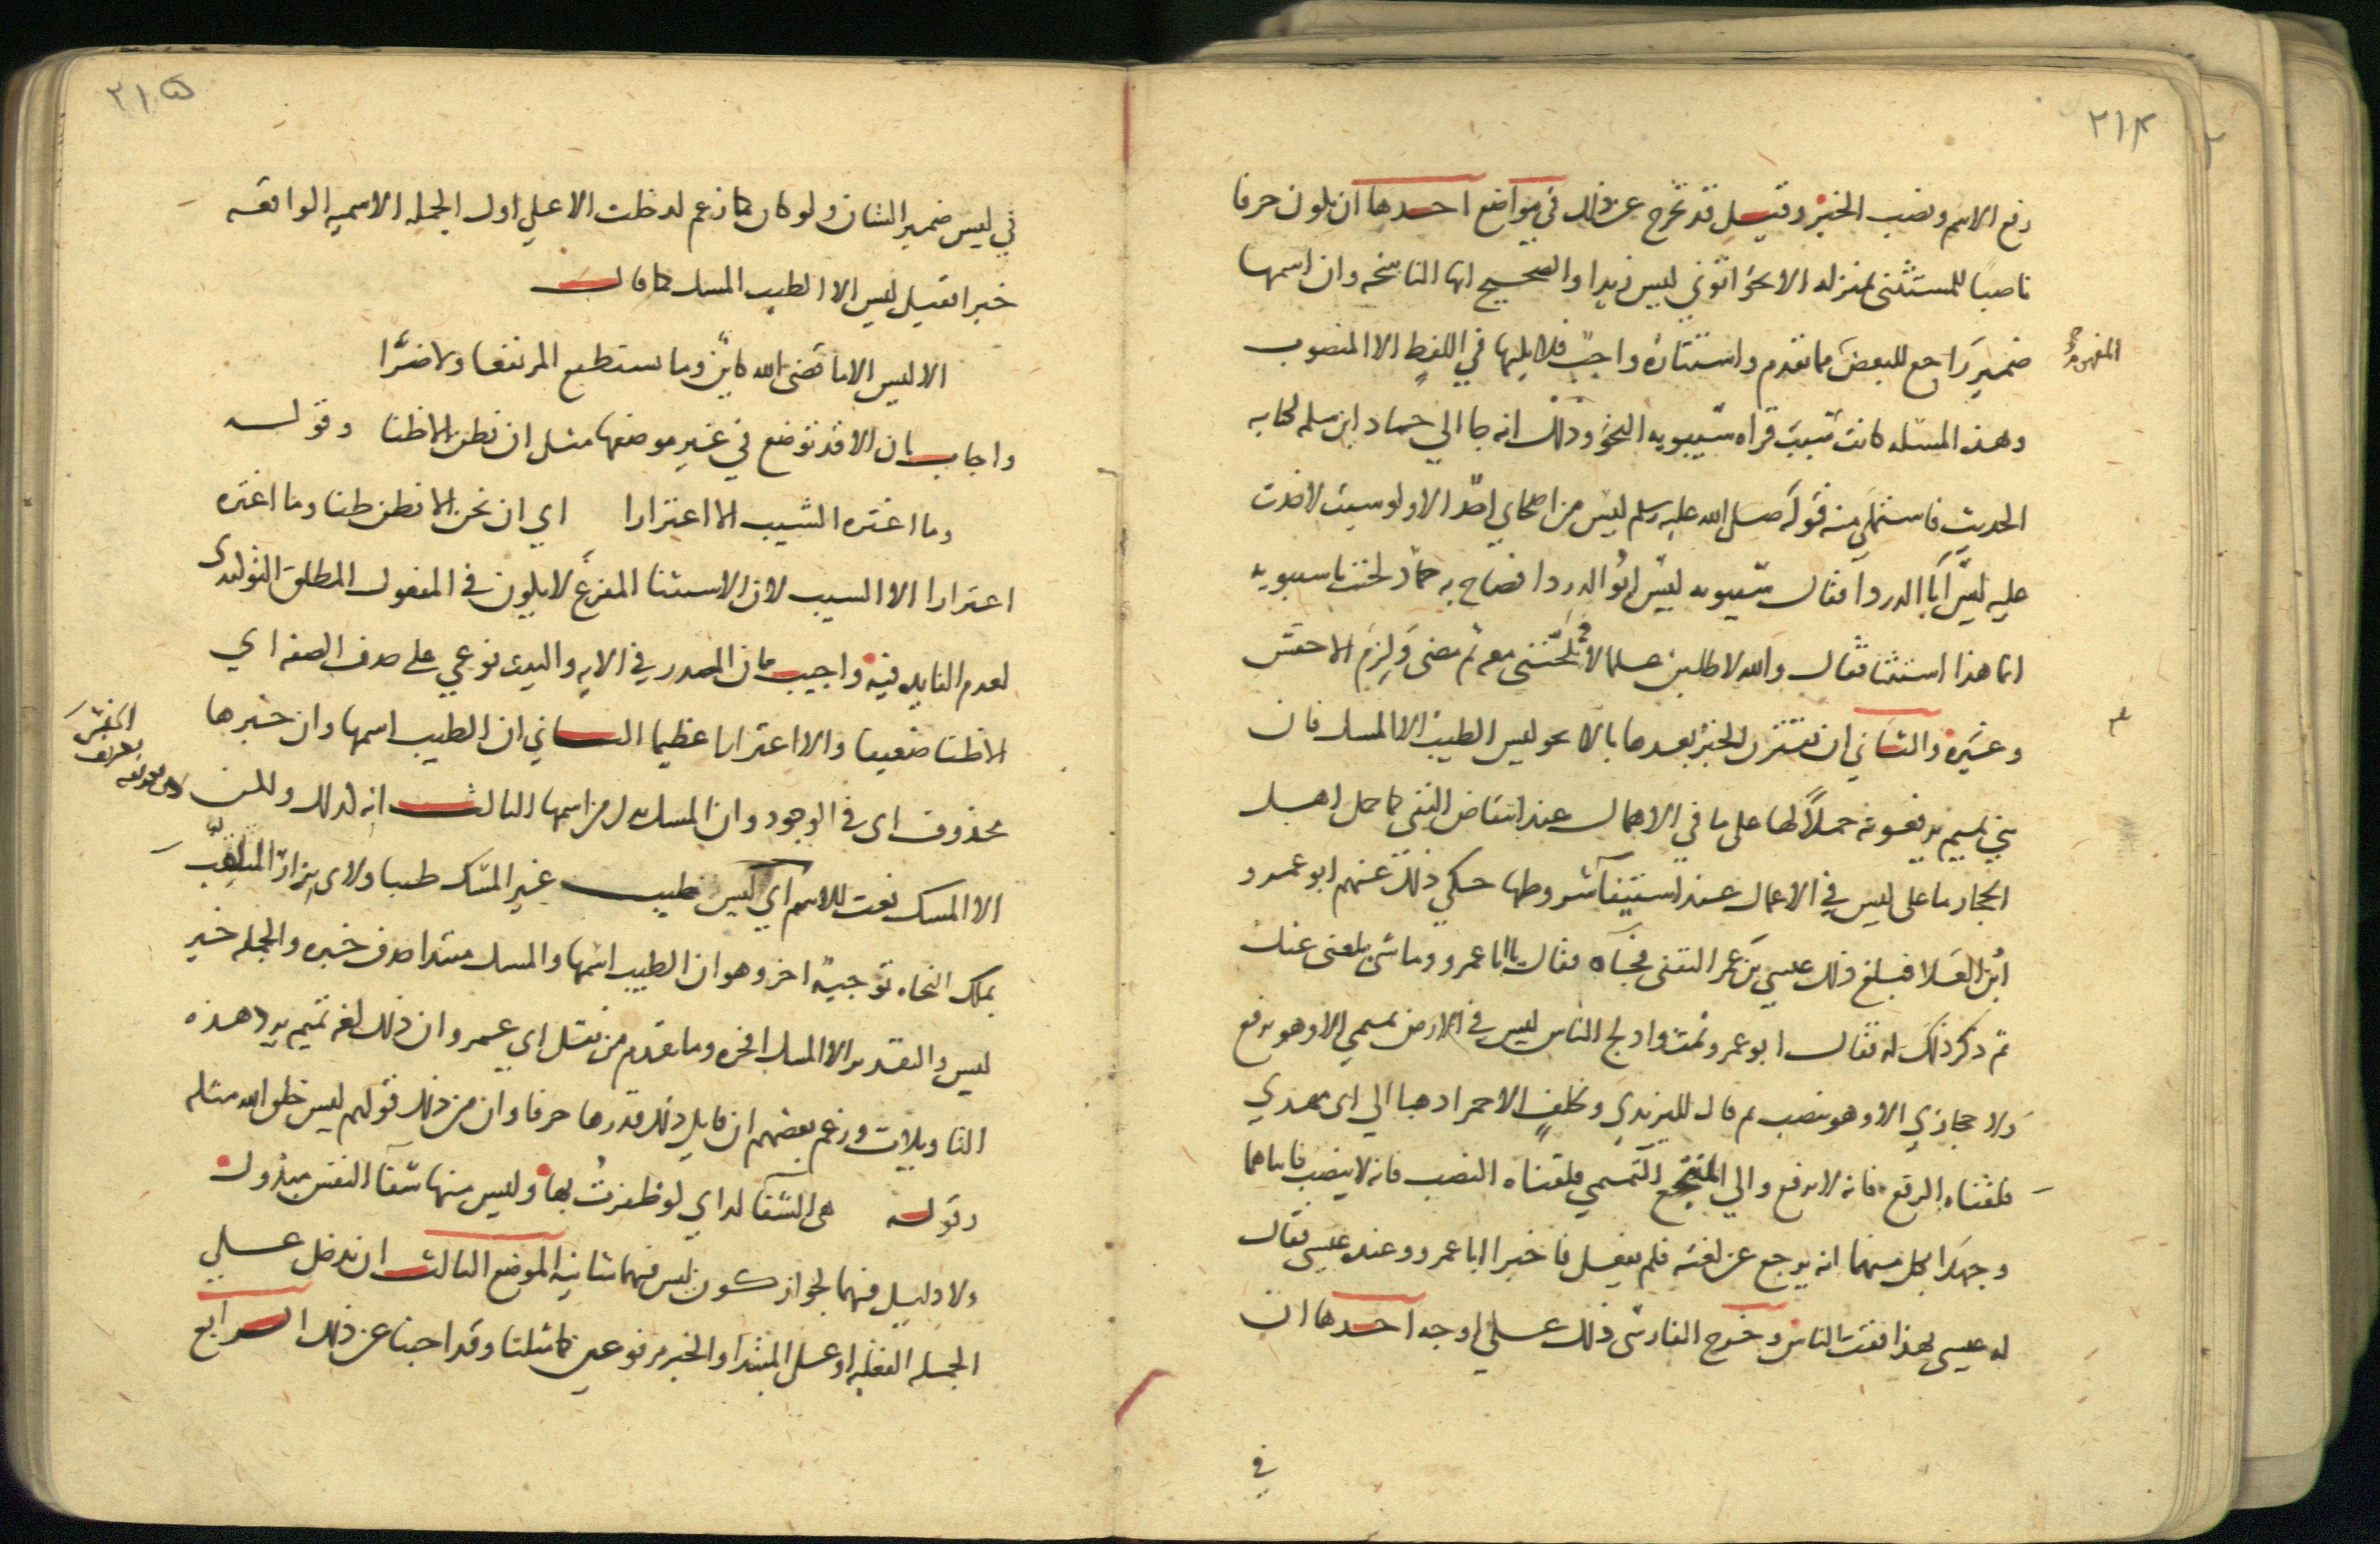 ٢١٤
رفع الاسم ونصب الخبر وقيل قد تخرج عن ذلك في مواضع احدها ان يكون حرفا
ناصبا للمستثنى بمنزلة الا نحو اتوني ليس زيدا والصحيح انها الناسخه وان اسمها
ضمير راجع للبعض مما تقدم واستتاره واجب فلا يليها في اللفظ الا المنصوب
المفهوم
وهذه المسئله كانت سبب قراه سيبويه النحو وذلك انه جا الي حماد ابن سلمه لكتابه
الحديث فاستملى منه قوله صلى الله عليه وسلم ليس من اصحابي احد الا ولو شيت لاخذت
عليه ليس ابا الدردا فقال سيبويه ليس ابو الدردا فصاح به حماد لحنت يا سيبويه
انما هذا استثنا فقال والله لاطلبن علما لا تلحنني معه ثم مضى ولزم الاخفش
وغيره والثاني ان يقترن الخبر بعدها بالا نحو ليس الطيب الا المسك فان
بني تميم يرفعونه حملا لها على ما في الاهمال عند انتقاض النفي كما حمل اهل
الحجاز ما على ليس في الاعمال عند استيفا شروطها حكي ذلك عنهم ابو عمرو
ابن العلا فبلغ ذلك عيسي بن عمر الثقفي فجاه فقال يا ابا عمرو وما شي بلغني عنك
ثم ذكر ذلك له فقال ابو عمرو نمت وادلج الناس ليس في الارض تميمي الا وهو يرفع
ولا حجازي الا وهو ينصب ثم قال لليزيدي وخلف الاحمر اذهبا الي ابي مهدي
فلقناه الرفع فانه لا يرفع والي المنتجع التميمي فلقناه النصب فانه لا ينصب فاتاهما
وجهدا بكل منهما انه يرجع عن لغته فلم يفعل فاخبرا ابا عمرو وعنده عيسى فقال
له عيسى بهذا فقت الناس وخرج الفارسي ذلك على اوجه احدها ان
في
٢١٥
في ليس ضمير الشان ولو كان كما زعم لدخلت الا علي اول الجمله الاسميه الواقعه
خبرا فقيل ليس الا الطيب المسك كما قال
الا ليس الا ما قضى الله كاين وما يستطيع المر نفعا ولا ضرا
واجاب بان الا قد توضع في غير موضعها مثل ان نظن الا ظنا وقوله
وما اغتره الشيب الا اغترارا اي ان نحن الا نظن ظنا وما اغتره
اغترارا الا الشيب لان الاستثنا المفرغ لا يكون في المفعول المطلق التوكيدي
لعدم الفايده فيه واجيب بان المصدر في الايه والبيت نوعي على حذف الصفه اي
الا ظنا ضعيفا والا اغترارا عظيما الثاني ان الطيب اسمها وان خبرها
محذوف اى في الوجود وان المسك بدل من اسمها الثالث انه كذلك ولكن
الا المسك نعت للاسم اي ليس طيب غير المسك طيبا ولابي نزار الملقب
بملك النحاه توجيه اخر وهو ان الطيب اسمها والمسك مبتدا حذف خبره والجمله خبر
ليس والتقدير الا المسك افخره وما تقدم من نقل ابي عمرو ان ذلك لغه تميم يرد هذه
التاويلات وزعم بعضهم ان قايل ذلك قدرها حرفا وان من ذلك قولهم ليس خلق الله مثله
وقوله هى الشفا لداي لو ظفرت بها وليس منها شفا النفس مبذول
ولا دليل فيهما لجواز كون ليس فيهما شانيه الموضع الثالث ان تدخل على
الجمله الفعليه او على المبتدا والخبر مرفوعين كما مثلنا وقد اجبنا عن ذلك الرابع